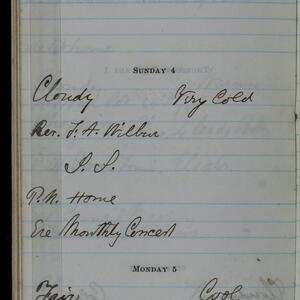 SUNDAY 4
Cloudy Very Cold
Rev. F. A. Wilbur
S. S.
P.M. Home
Eve Monthly Concert
MONDAY 5
Fair Cool